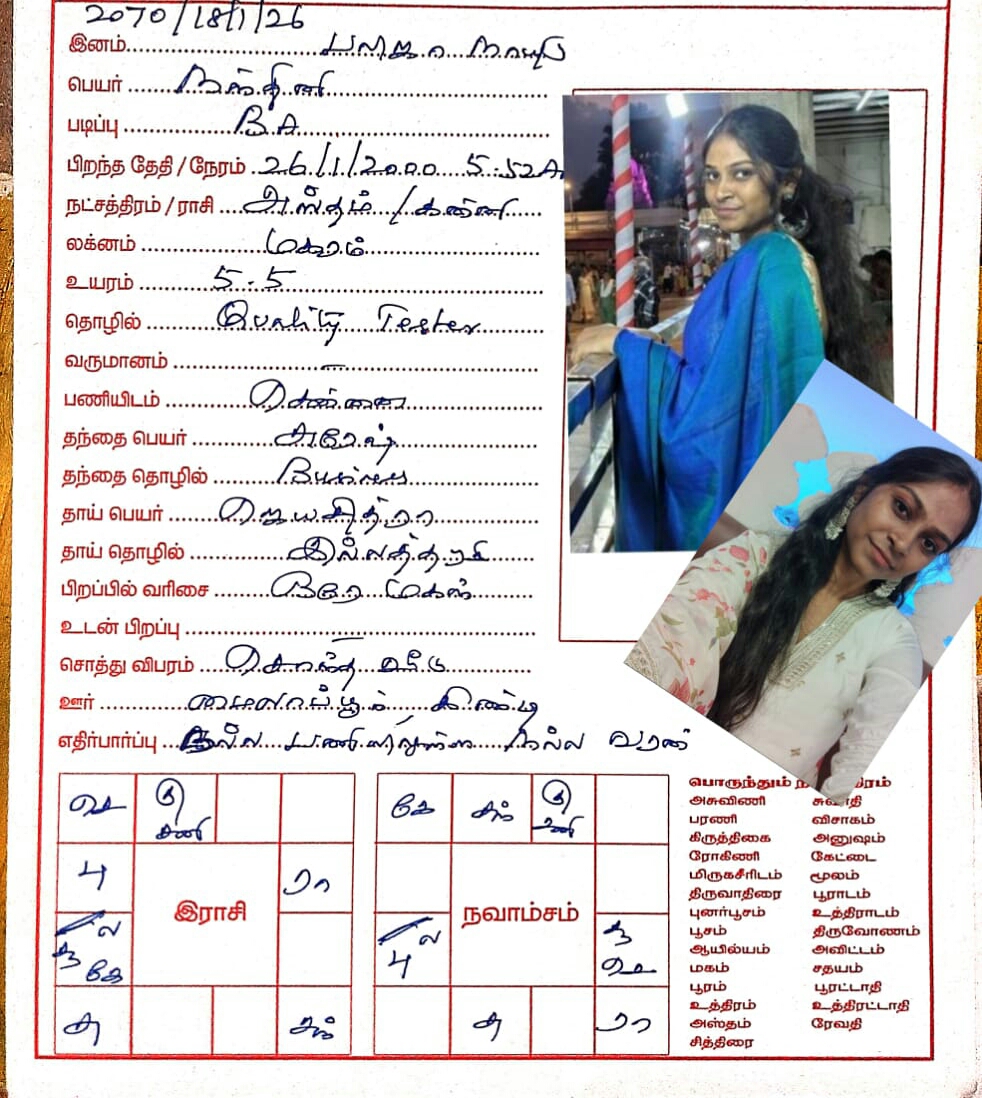 2070/18/1/26
இனம் பலிஜா நாயுடு
பெயர் நந்தினி
படிப்பு B.A
பிறந்த தேதி / நேரம் 26/1/2000 5.52A
நட்சத்திரம் / ராசி அஸ்தம் / கன்னி
லக்னம் மகரம்
உயரம் 5.5
தொழில் Quality Tester
வருமானம் –
பணியிடம் சென்னை
தந்தை பெயர்
தந்தை தொழில்
தாய் பெயர் ஜெயசித்ரா
தாய் தொழில் இல்லத்தரசி
பிறப்பில் வரிசை ஒரே மகள்
உடன் பிறப்பு –
சொத்து விபரம் சொந்த வீடு
ஊர் மைலாப்பூர், கிண்டி
எதிர்பார்ப்பு நல்ல பணியிலுள்ள நல்ல வரன்
உ குரு சனி
பு ரா
இராசி
ல சூ கே
சு சந்
கே சந் குரு சனி
நவாம்சம்
ல பு சூ உ
சு ரா
பொருந்தும்
அசுவினி
பரணி விசாகம்
கிருத்திகை அனுஷம்
ரோகிணி கேட்டை
மிருகசீரிடம் மூலம்
திருவாதிரை பூராடம்
புனர்பூசம் உத்திராடம்
பூசம் திருவோணம்
ஆயில்யம் அவிட்டம்
மகம் சதயம்
பூரம் பூரட்டாதி
உத்திரம் உத்திரட்டாதி
அஸ்தம் ரேவதி
சித்திரை